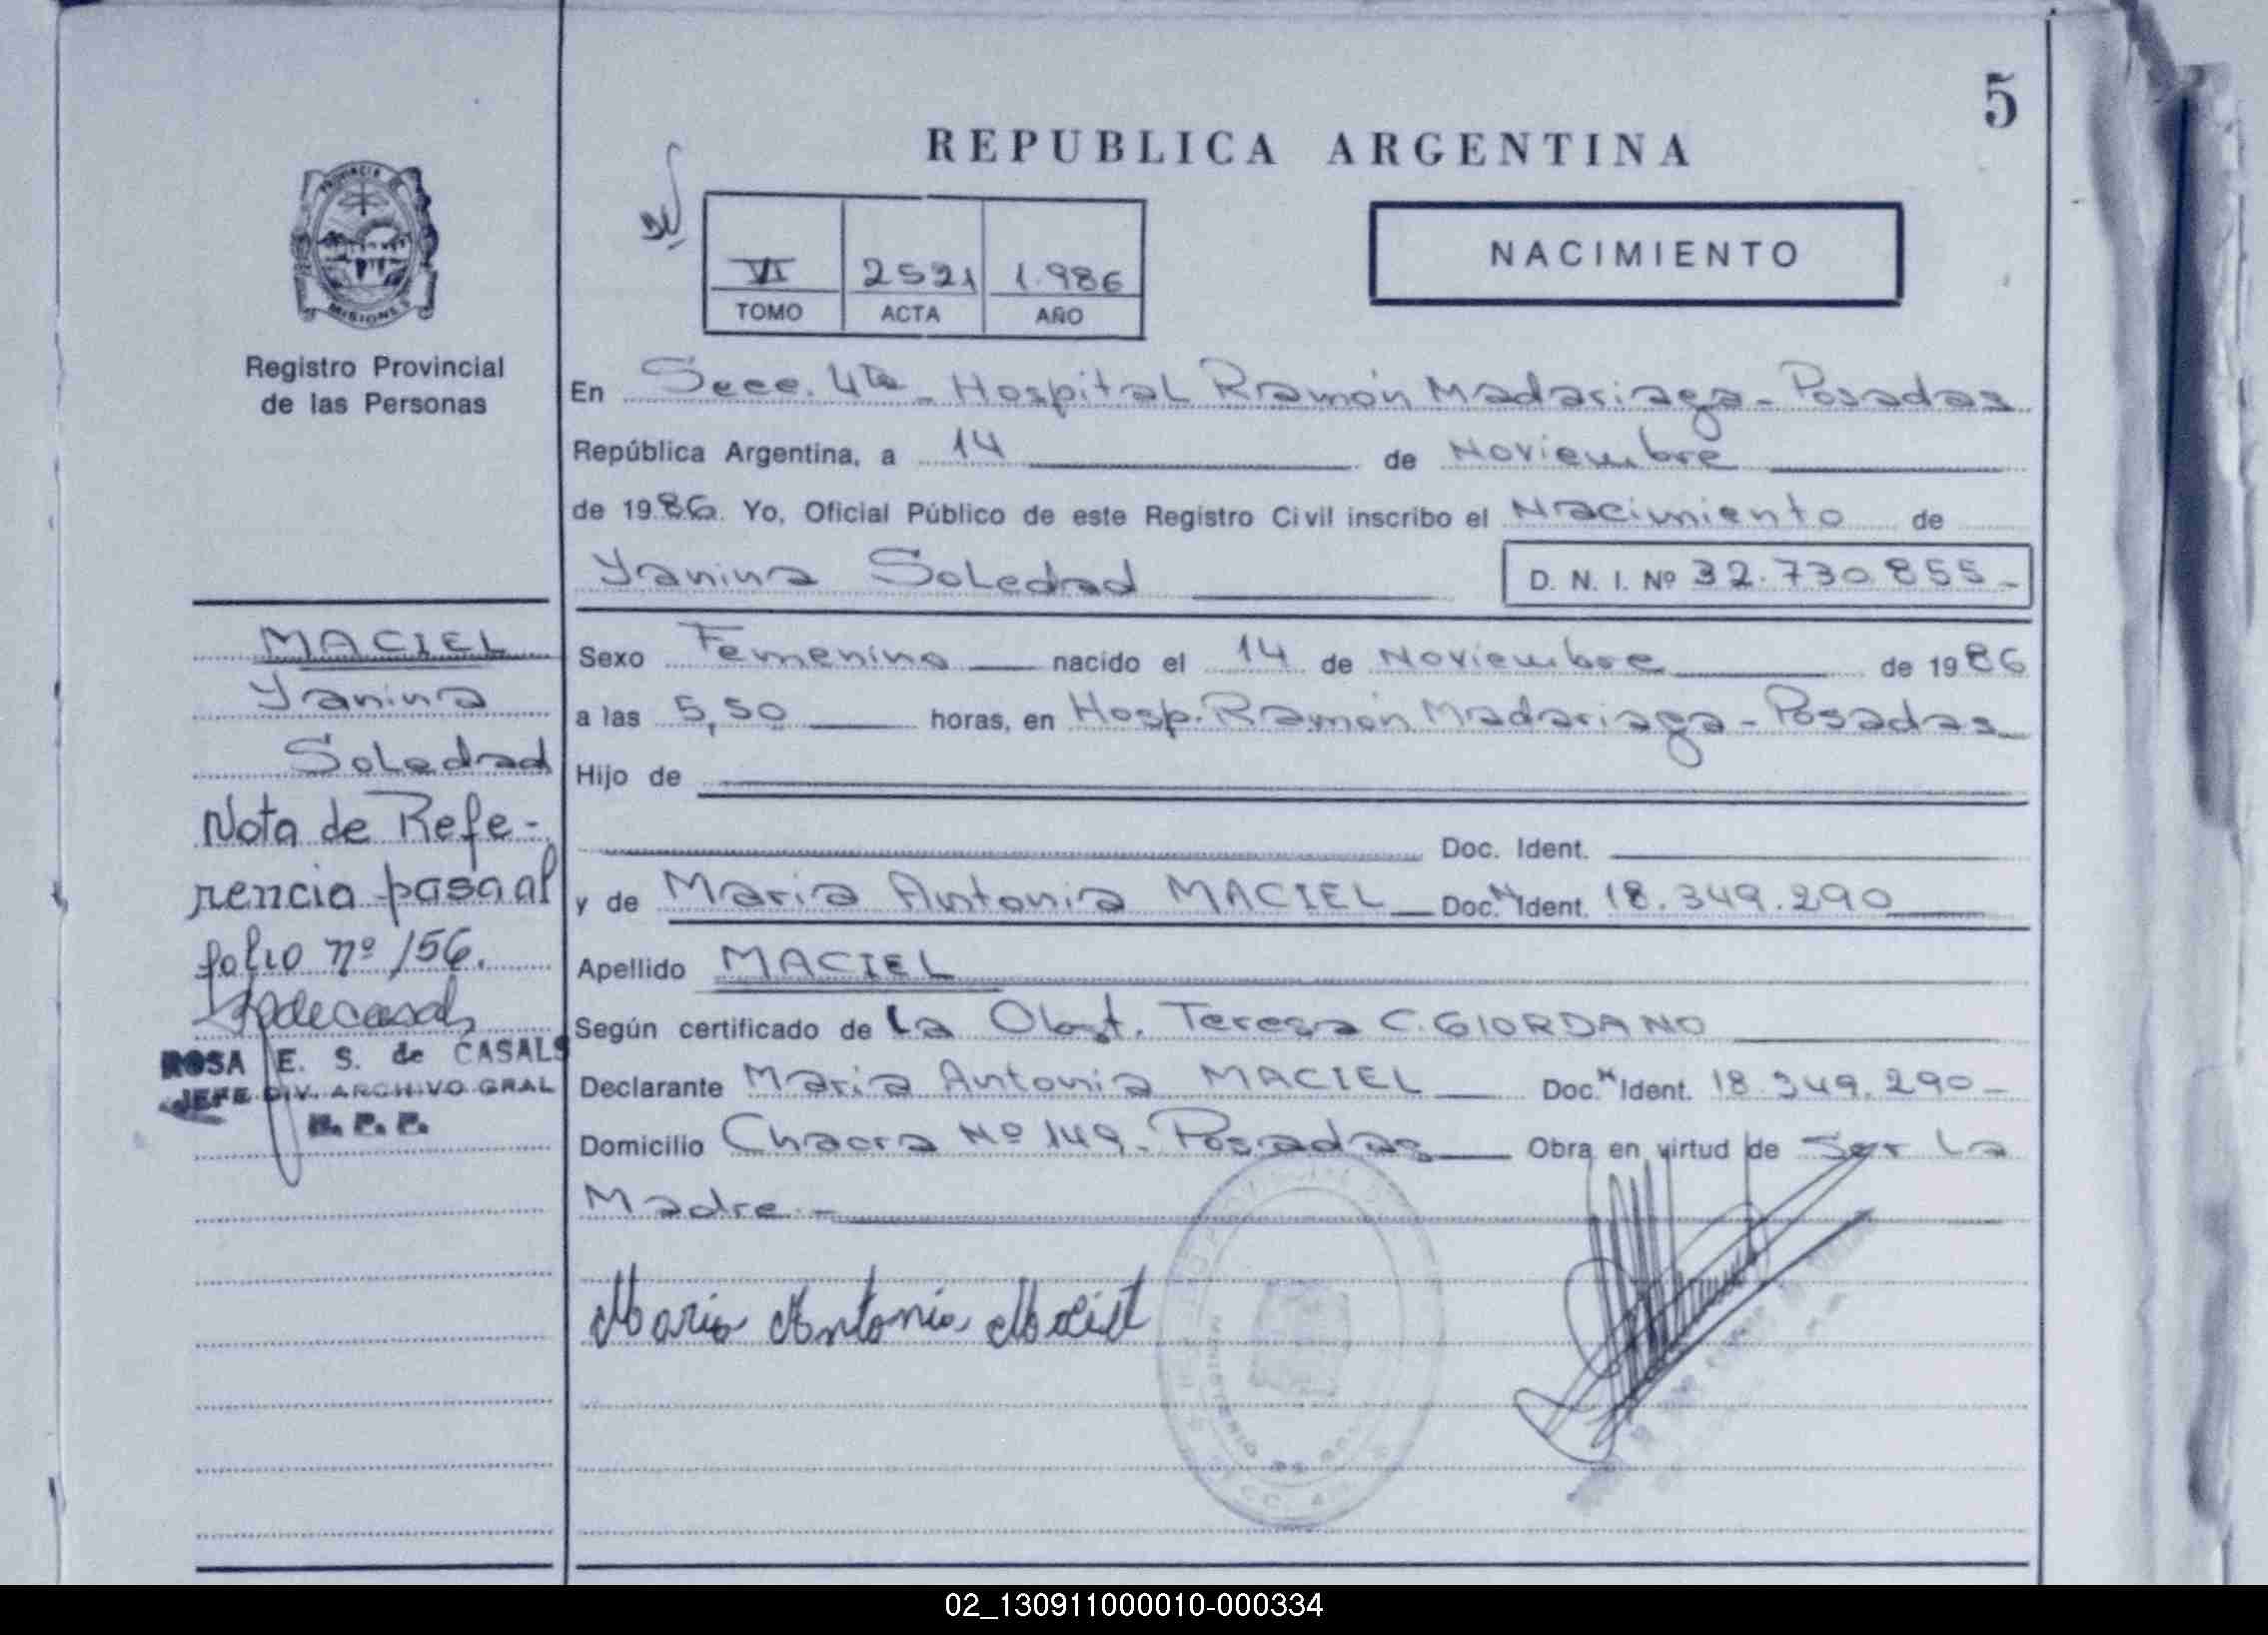 5
REPUBLICA ARGENTINA
PROVINCIA DE
MISIONES
Registro Provincial
de las Personas
VI 2521 1.986
TOMO ACTA AÑO
NACIMIENTO
En Secc. 4ta - Hospital Ramón Madariaga - Posadas
República Argentina, a 14 de Noviembre
de 1986. Yo, Oficial Público de este Registro Civil inscribo el Nacimiento de
Yanina Soledad D. N. I. Nº 32.730.855-
MACIEL
Yanina
Soledad
Nota de Refe-
rencia pasa al
folio nº 156.
ROSA E. S. de CASALS
JEFE DIV. ARCHIVO GRAL
R. P. P.
Sexo Femenino nacido el 14 de Noviembre de 1986
a las 5,50 horas, en Hosp. Ramón Madariaga - Posadas
Hijo de
Doc. Ident.
y de Maria Antonia MACIEL Doc. N Ident. 18.349.290
Apellido MACIEL
Según certificado de La Obst. Teresa C. GIORDANO
Declarante Maria Antonia MACIEL Doc. N Ident. 18.349.290-
Domicilio Chacra Nº 149 - Posadas Obra en virtud de Ser La
Madre.-
Maria Antonia Maciel
MINISTERIO DE
02_130911000010-000334